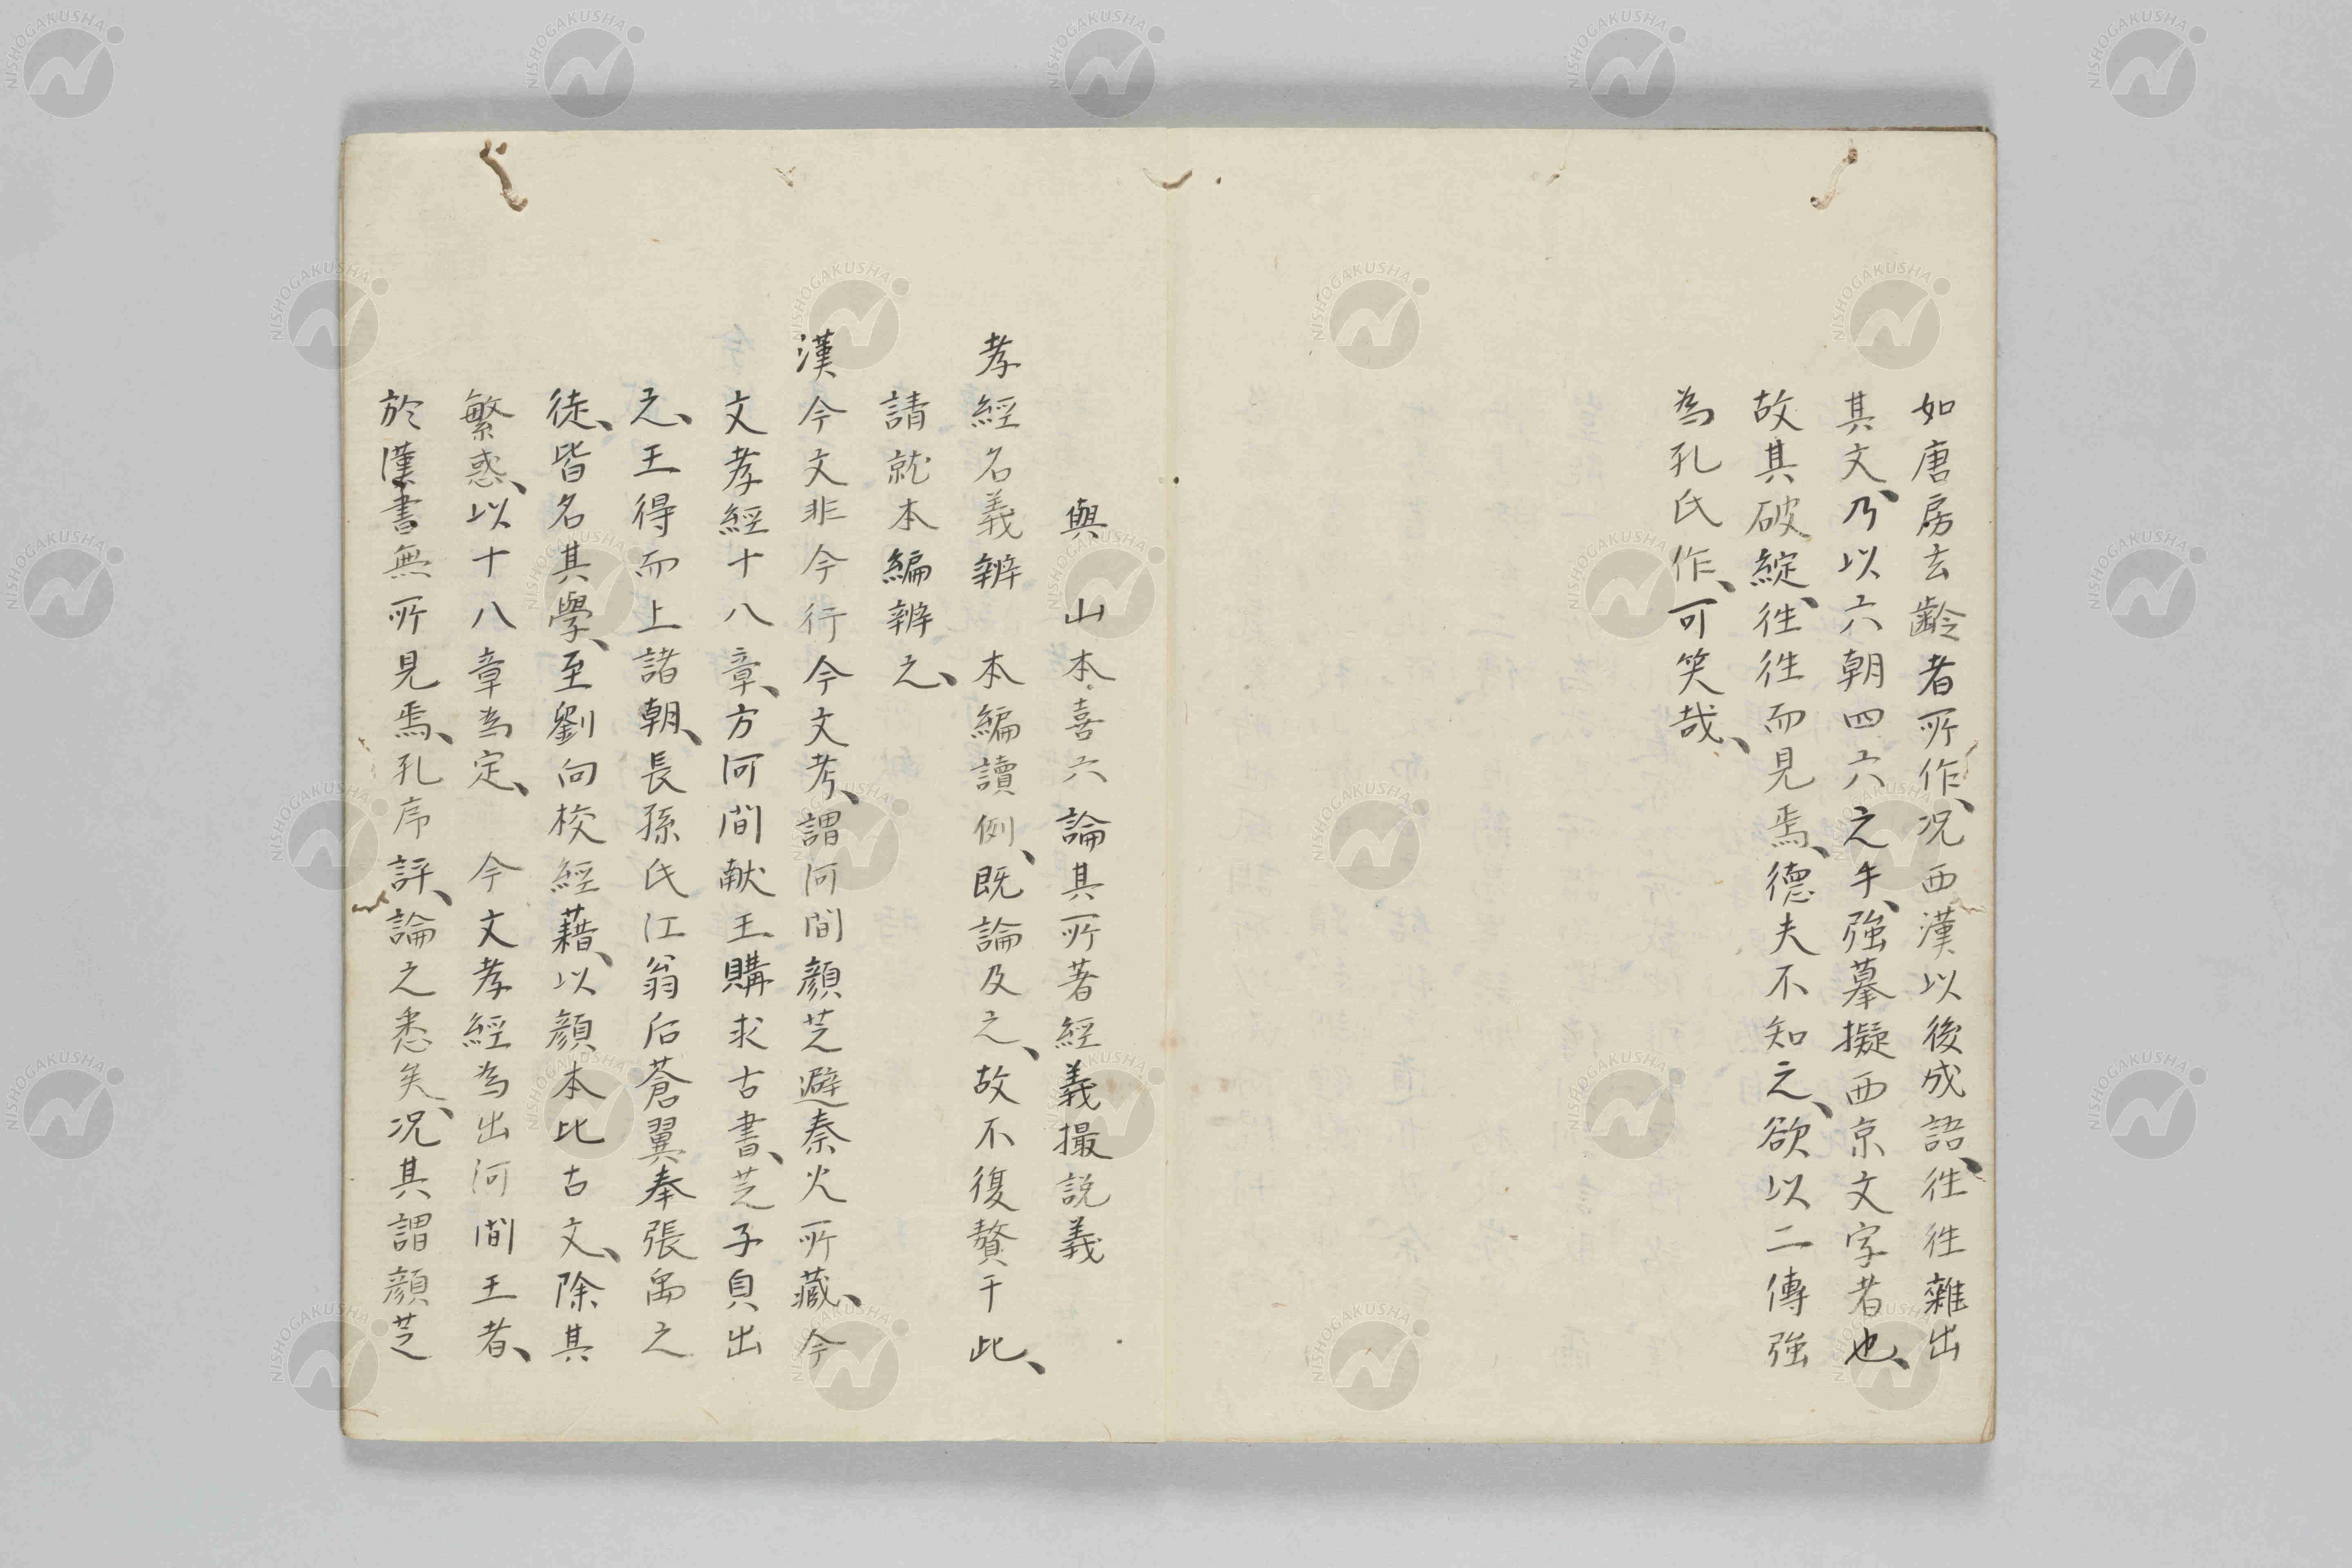 如唐房玄齡者所作、况西漢以後成語、徃徃雜出
其文、乃以六朝四六之手、強摹擬西京文字者也、
故其破綻、徃徃而見焉、德夫不知之、欲以二傳強
為孔氏作、可笑哉、
與山本喜六論其所著經義撮説義
孝經名義辨　本編讀例、既論及之、故不復贅于此、
請就本編辨之、
漢今文非今行今文考、謂河間顔芝避秦火所藏、今
文孝經十八章、方河間献王購求古書、芝子貞出
之、王得而上諸朝、長孫氏江翁后蒼翼奉張禹之
徒、皆名其學、至劉向校經藉、以顔本比古文、除其
繁惑、以十八章為定、　今文孝經為出河間王者、
於漢書無所見焉、孔序評、論之悉矣、况其謂顔芝
NISHOGAKUSHA